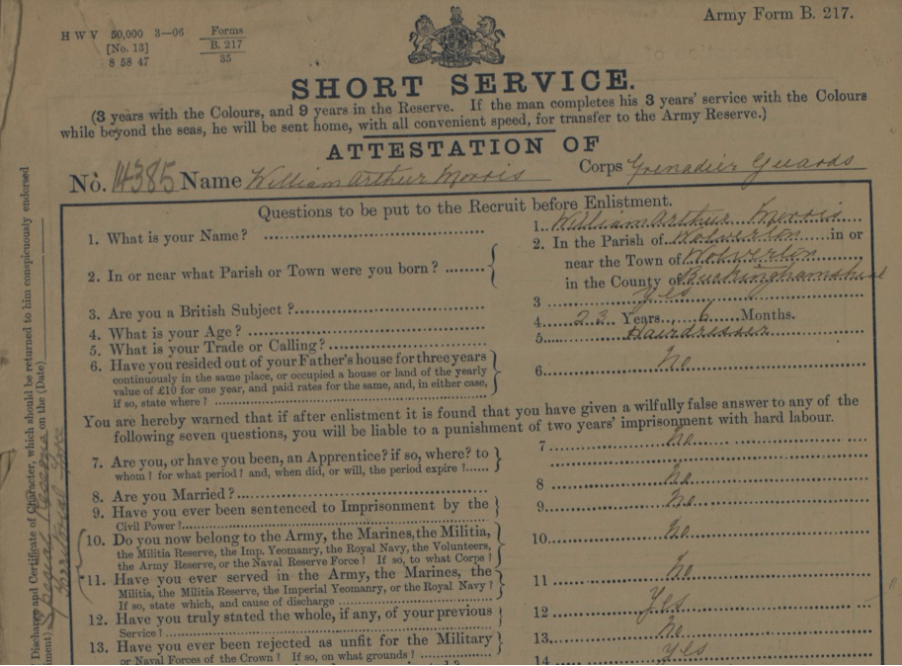 Army Form B. 217.
H W V 50,000 3—06 Forms
[No. 13] B. 217
8 58 47 35
SHORT SERVICE.
(3 years with the Colours, and 9 years in the Reserve. If the man completes his 3 years' service with the Colours
while beyond the seas, he will be sent home, with all convenient speed, for transfer to the Army Reserve.)
ATTESTATION OF
No. 14385 Name William Arthur Morris Corps Grenadier Guards
Questions to be put to the Recruit before Enlistment.
1. What is your Name? 1. William Arthur Morris
2. In or near what Parish or Town were you born? 2. In the Parish of Wolverton in or
near the Town of Wolverton
in the County of Buckinghamshire
3. Are you a British Subject? 3 Yes
4. What is your Age? 4. 23 Years, 6 Months.
5. What is your Trade or Calling? 5. Hairdresser
6. Have you resided out of your Father's house for three years
continuously in the same place, or occupied a house or land of the yearly
value of £10 for one year, and paid rates for the same, and, in either case,
if so, state where? 6. No
You are hereby warned that if after enlistment it is found that you have given a wilfully false answer to any of the
following seven questions, you will be liable to a punishment of two years' imprisonment with hard labour.
7. Are you, or have you been, an Apprentice? if so, where? to 7 No
whom? for what period? and, when did, or will, the period expire?
8. Are you Married? 8 No
9. Have you ever been sentenced to Imprisonment by the 9. No
Civil Power?
10. Do you now belong to the Army, the Marines, the Militia,
the Militia Reserve, the Imp. Yeomanry, the Royal Navy, the Volunteers, 10. No
the Army Reserve, or the Naval Reserve Force? If so, to what Corps?
*11. Have you ever served in the Army, the Marines, the
Militia, the Militia Reserve, the Imperial Yeomanry, or the Royal Navy? 11 No
If so, state which, and cause of discharge
12. Have you truly stated the whole, if any, of your previous 12 Yes
Service?
13. Have you ever been rejected as unfit for the Military 13. No
or Naval Forces of the Crown? If so, on what grounds?
14 Yes
Discharge and Certificate of Character, which should be returned to him conspicuously endorsed
on the (Date)
Special Reserve
Territorial Force